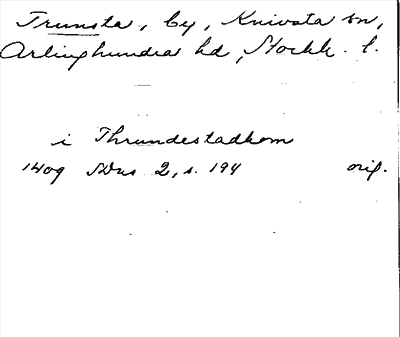 Trunsta, by, Knivsta sn,
Ärlinghundra hd, Stockh. l.
i Thrundestadhom
1409 SDns 2, s. 194 orig.